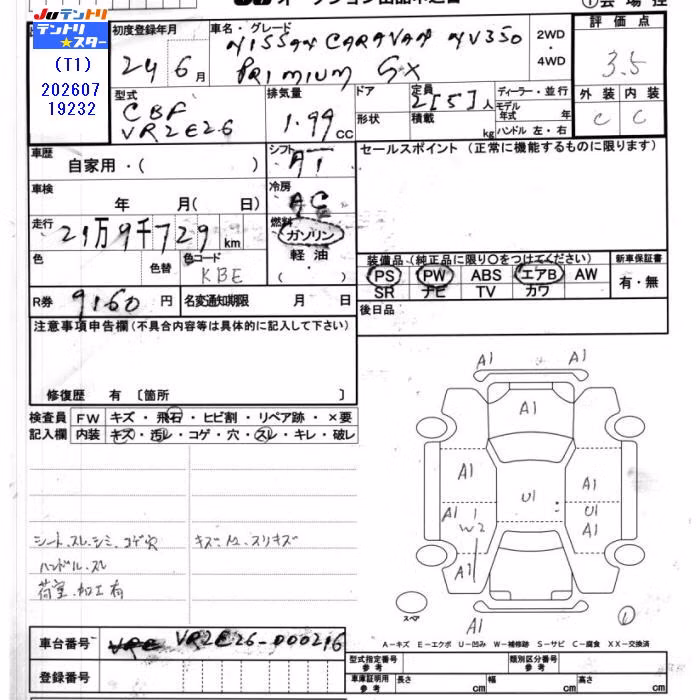 JUテントリ
テントリ★スター
(T1)
202607
19232
初度登録年月
24 6月
車名・グレード
NISSAN CARAVAN NV350
PRIMIUM GX
2WD
・
4WD
評価点
3.5
型式
CBF
VR2E26
排気量
1.99 CC
ドア
形状
定員
2[5]人
積載 kg
ディーラー・並行
モデル
年式 年
ハンドル 左・右
外装 内装
C C
車歴
自家用・( )
シフト
AT
セールスポイント (正常に機能するものに限ります)
車検
年 月( 日)
冷房
AC
走行
21万9千729km
燃料
ガソリン
軽油
・
( )
色
色替
色コード
KBE
装備品(純正品に限り○をつけてください)
新車保証書
PS PW ABS エアB AW
SR ナビ TV カワ
有・無
R券 9160円
名変通知期限 月 日
後日品
注意事項申告欄(不具合内容等は具体的に記入して下さい)
修復歴 有〔箇所 〕
検査員
記入欄
FW キズ・飛石・ヒビ割・リペア跡・×要
内装 キズ・汚レ・コゲ・穴・スレ・キレ・破レ
シート、スレ、シミ、コゲ穴
キズ・A2、スリキズ
ハンドル、スレ
荷室、加工有
A1 A1
A1
A1 A1
U1
A1 1
U1
A1
W2
A1
スペア
A1
1
A－キズ E－エクボ U－凹み W－補修跡 S－サビ C－腐食 XX－交換済
車台番号 VR2E26-000216
登録番号
型式指定番号
参考
類別区分番号
参考
車庫証明用
参考
長さ cm
幅 cm
高さ cm